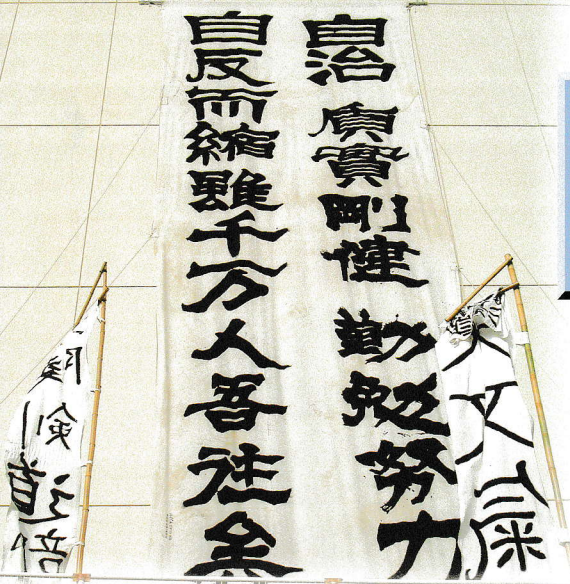 自治 質實剛健 勤勉努力
自反而縮雖千万人吾往矣